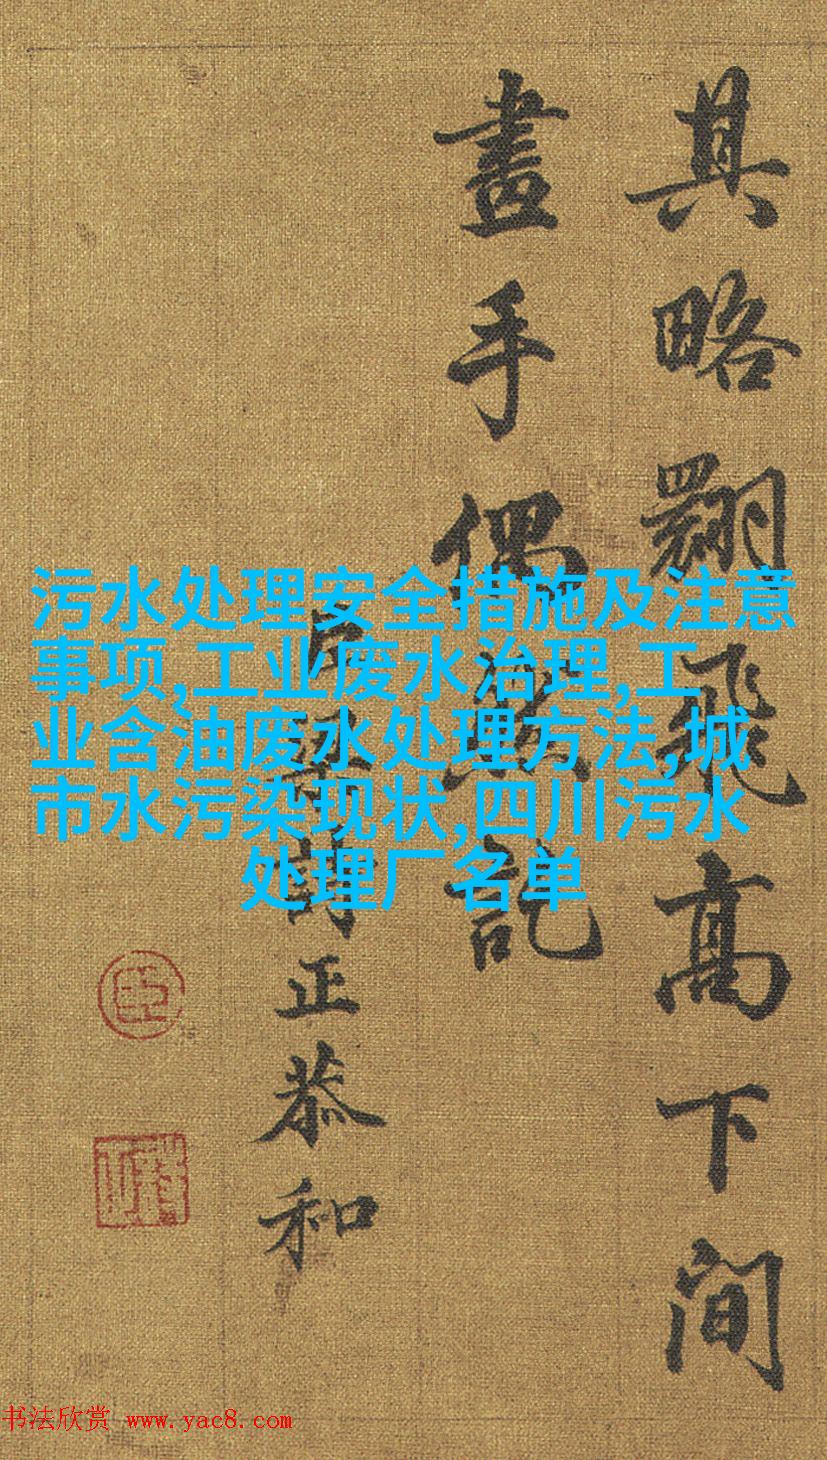 其略翾飛高下間
畫手偶然記
臣梁詩正恭和
臣
污水处理安全措施及注意
事项,工业废水治理,工
业含油废水处理方法,城
市水污染现状,四川污水
处理厂名单
书法欣赏 www.yac8.com